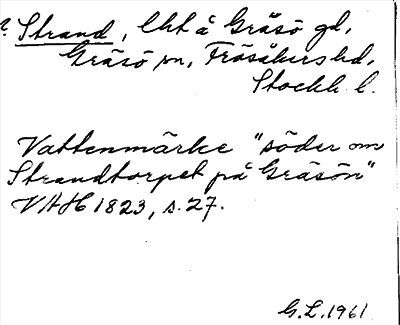 ? Strand, lht å Gräsö gd,
Gräsö sn, Frösåkers hd,
Stockh. l.
Vattenmärke "söder om
Strandtorpet på Gräsön"
VAH 1823, s. 27.
G.L. 1961